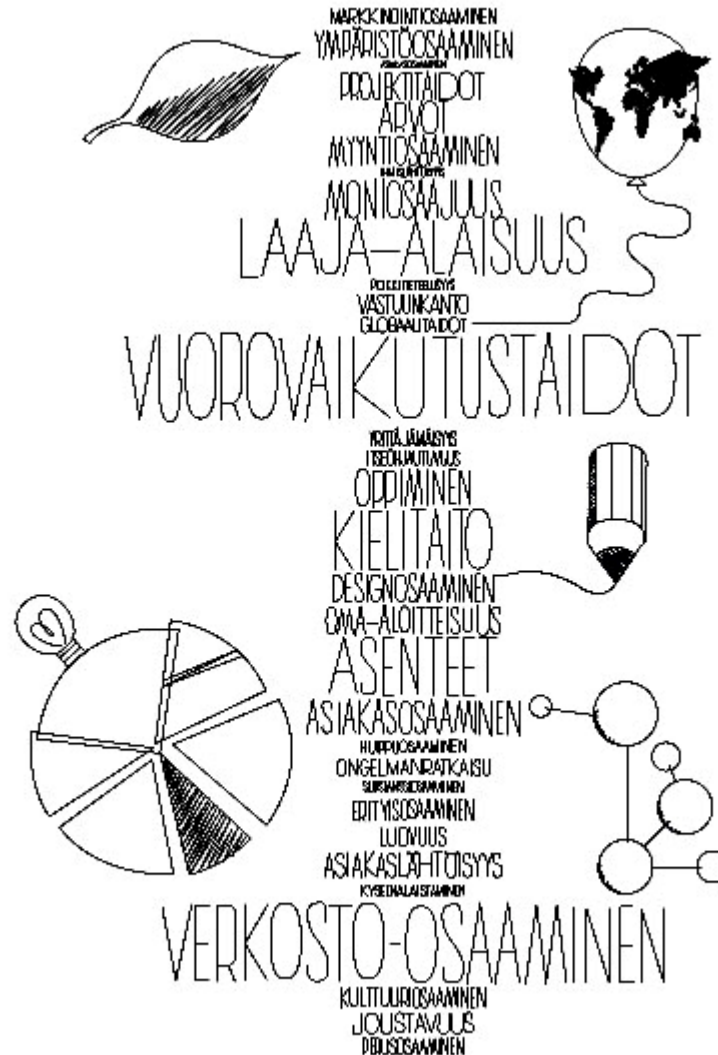 MARKKINOINTIOSAAMINEN
YMPÄRISTÖOSAAMINEN
PROJEKTITAIDOT
ARVOT
MYYNTIOSAAMINEN
MONIOSAAJUUS
LAAJA-ALAISUUS
POIKKITIETEELLISYYS
VASTUUNKANTO
GLOBAALITAIDOT
VUOROVAIKUTUSTAIDOT
YRITTÄJÄMÄISYYS
ITSEOHJAUTUVUUS
OPPIMINEN
KIELITAITO
DESIGNOSAAMINEN
OMA-ALOITTEISUUS
ASENTEET
ASIAKASOSAAMINEN
HUIPPUOSAAMINEN
ONGELMANRATKAISU
SUBSTANSSIOSAAMINEN
ERITYISOSAAMINEN
LUOVUUS
ASIAKASLÄHTÖISYYS
KYSEENALAISTAMINEN
VERKOSTO-OSAAMINEN
KULTTUURIOSAAMINEN
JOUSTAVUUS
PERUSOSAAMINEN